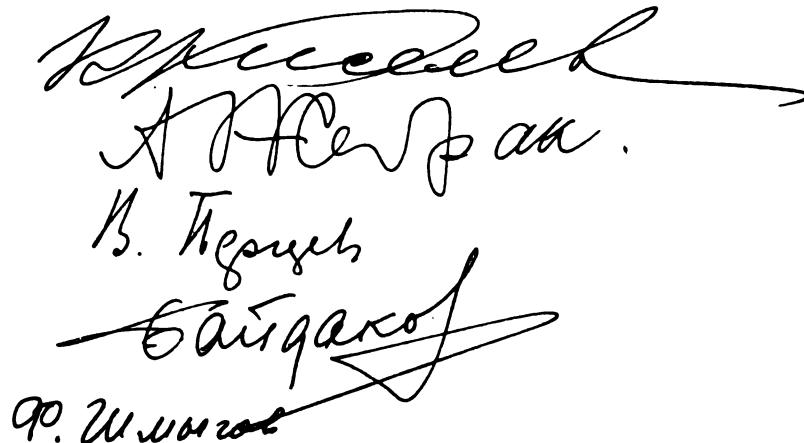 К Киселев
А Жебрак.
В. Перцев
Байдаков
Ф. Шмыгов